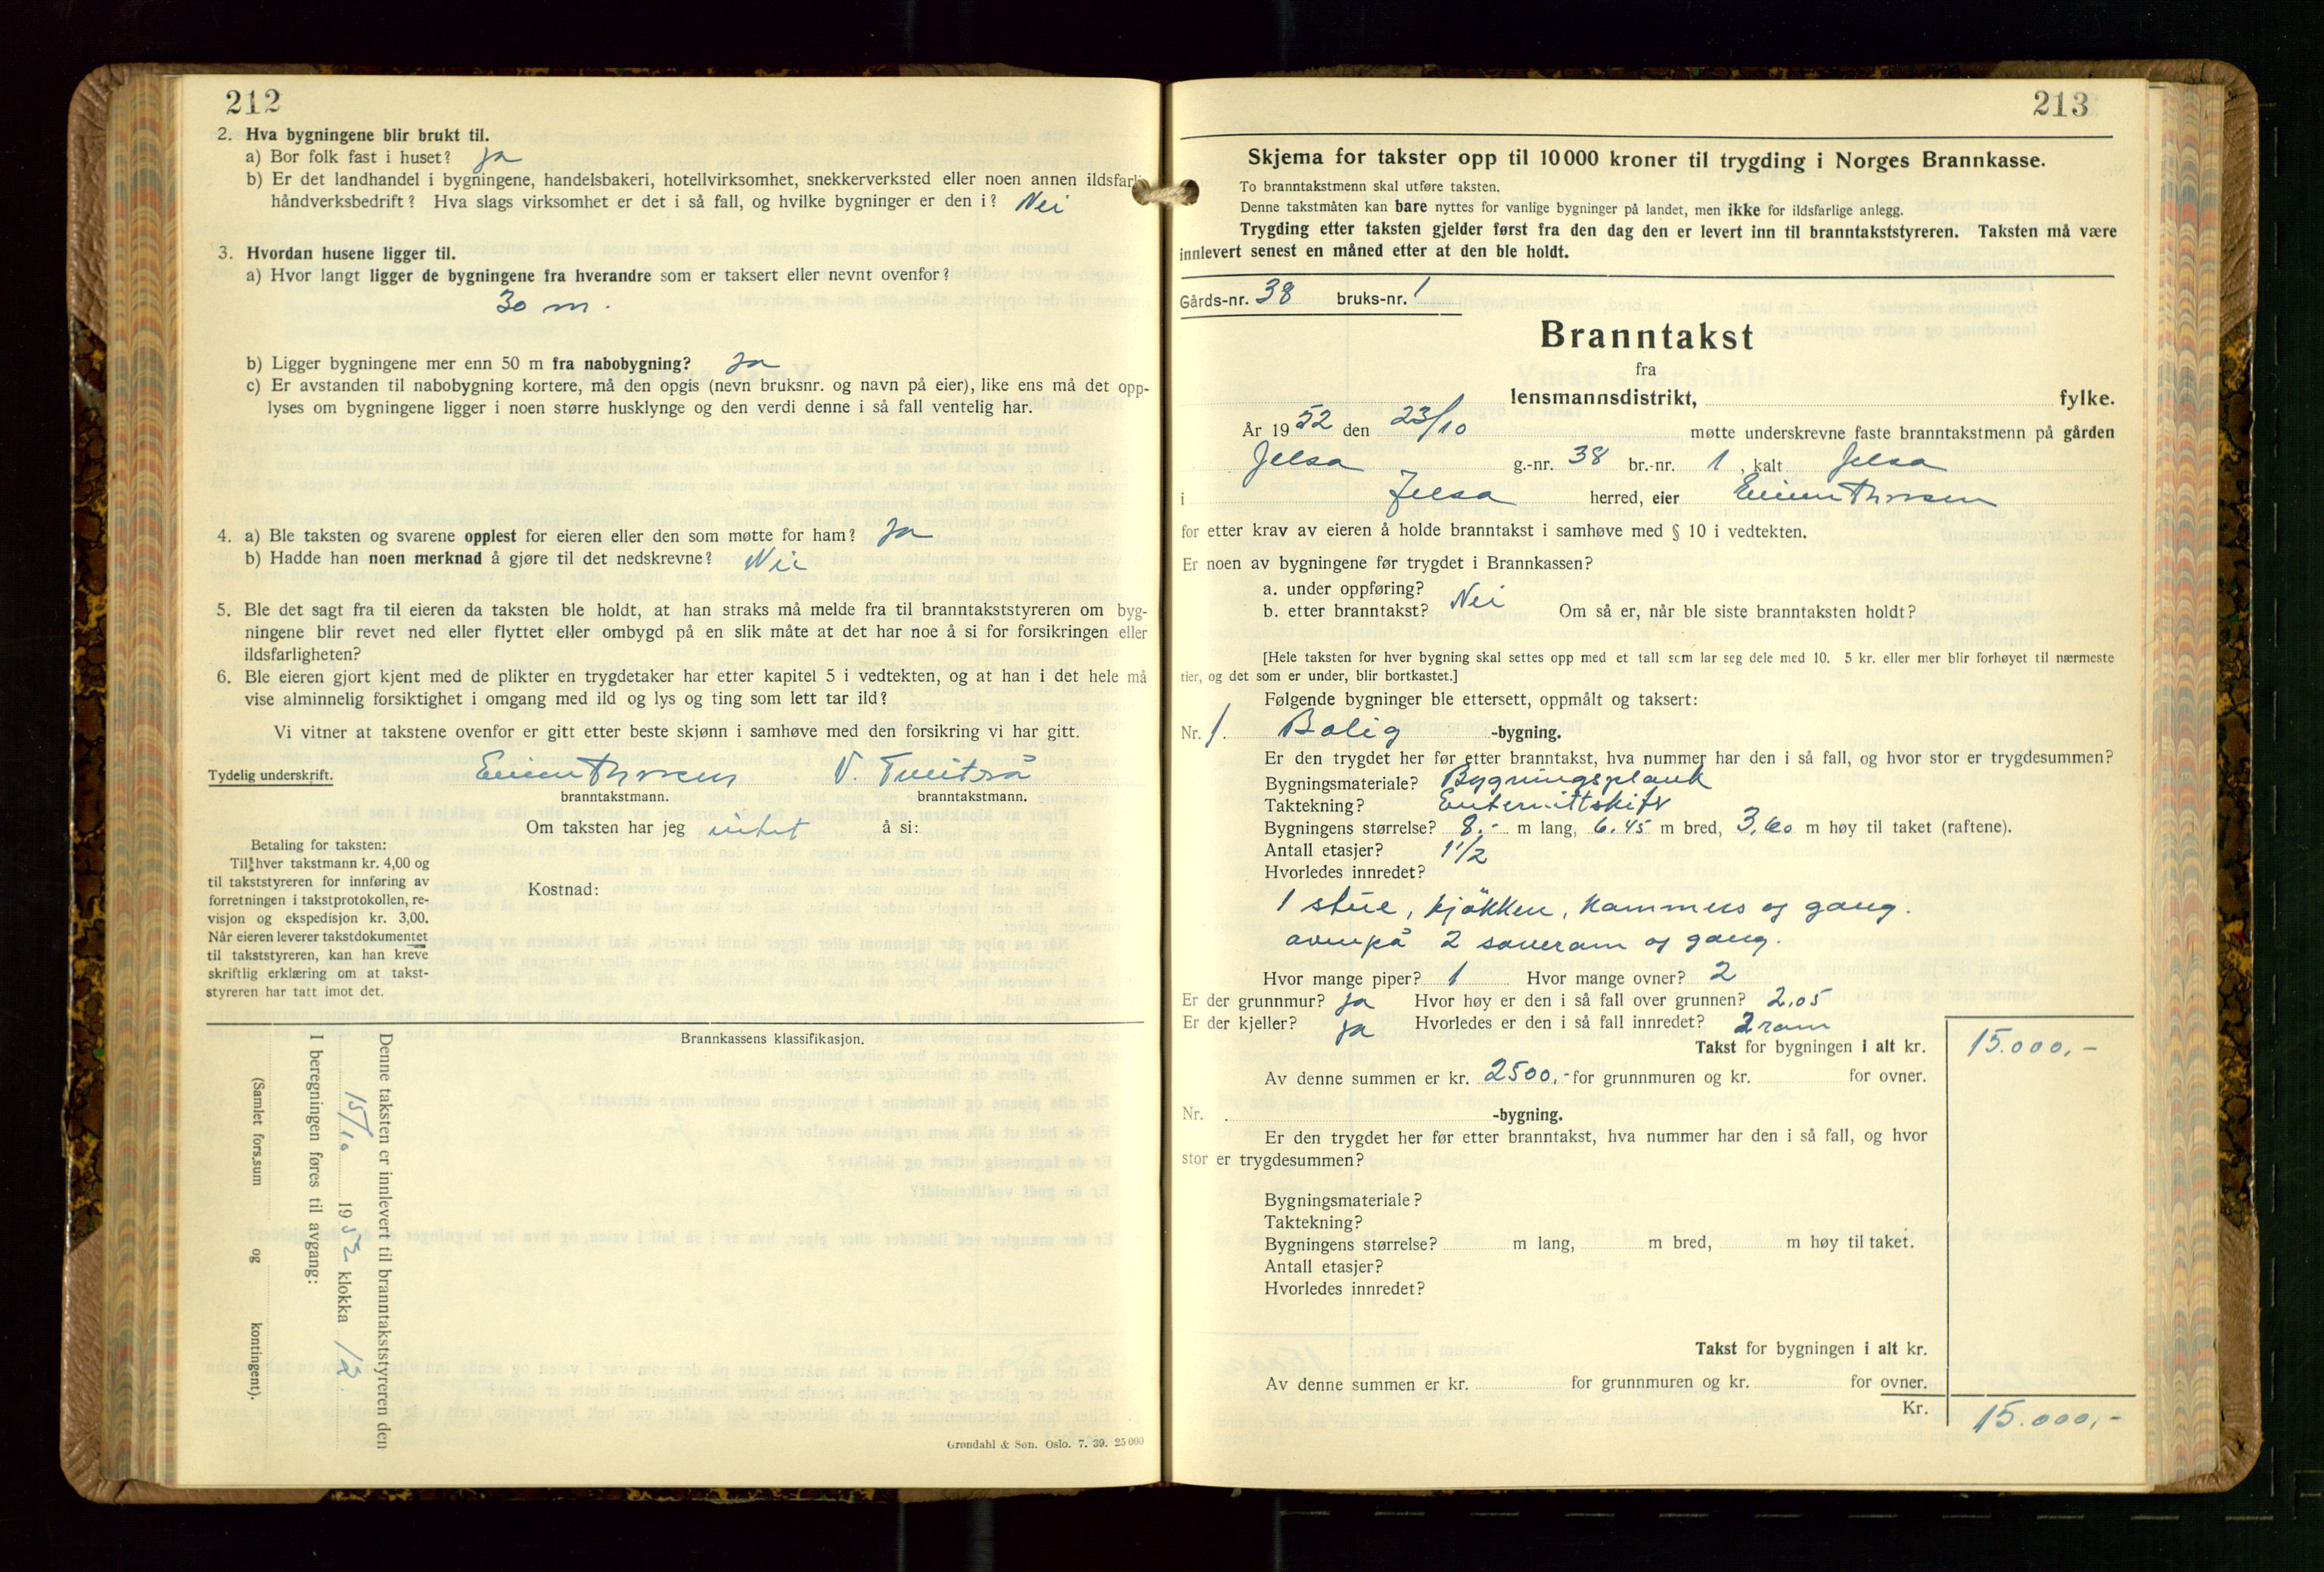 212
2. Hva bygningene blir brukt til.
a) Bor folk fast i huset? ja
b) Er det landhandel i bygningene, handelsbakeri, hotellvirksomhet, snekkerverksted eller noen annen ildsfarlig
håndverksbedrift? Hva slags virksomhet er det i så fall, og hvilke bygninger er den i? Nei
3. Hvordan husene ligger til.
a) Hvor langt ligger de bygningene fra hverandre som er taksert eller nevnt ovenfor?
30 m.
b) Ligger bygningene mer enn 50 m fra nabobygning? ja
c) Er avstanden til nabobygning kortere, må den opgis (nevn bruksnr. og navn på eier), like ens må det opp-
lyses om bygningene ligger i noen større husklynge og den verdi denne i så fall ventelig har.
4. a) Ble taksten og svarene opplest for eieren eller den som møtte for ham? ja
b) Hadde han noen merknad å gjøre til det nedskrevne? Nei
5. Ble det sagt fra til eieren da taksten ble holdt, at han straks må melde fra til branntakststyreren om byg-
ningene blir revet ned eller flyttet eller ombygd på en slik måte at det har noe å si for forsikringen eller
ildsfarligheten?
6. Ble eieren gjort kjent med de plikter en trygdetaker har etter kapitel 5 i vedtekten, og at han i det hele må
vise alminnelig forsiktighet i omgang med ild og lys og ting som lett tar ild?
Vi vitner at takstene ovenfor er gitt etter beste skjønn i samhøve med den forsikring vi har gitt.
Tydelig underskrift. V.
branntakstmann. branntakstmann.
Om taksten har jeg intet å si:
Betaling for taksten:
Til hver takstmann kr. 4,00 og
til takststyreren for innføring av
forretningen i takstprotokollen, re-
visjon og ekspedisjon kr. 3,00.
Når eieren leverer takstdokumentet
til takststyreren, kan han kreve
skriftlig erklæring om at takst-
styreren har tatt imot det.
Kostnad:
Brannkassens klassifikasjon.
Denne taksten er innlevert til branntakststyreren den
15/10 1952 klokka 12
I beregningen føres til avgang:
(Samlet fors.sum og kontingent).
Grøndahl & Søn. Oslo. 7. 39. 25 000
213
Skjema for takster opp til 10 000 kroner til trygding i Norges Brannkasse.
To branntakstmenn skal utføre taksten.
Denne takstmåten kan bare nyttes for vanlige bygninger på landet, men ikke for ildsfarlige anlegg.
Trygding etter taksten gjelder først fra den dag den er levert inn til branntakststyreren. Taksten må være
innlevert senest en måned etter at den ble holdt.
Gårds-nr. 38 bruks-nr. 1
Branntakst
fra
lensmannsdistrikt, fylke.
År 1952 den 23/10 møtte underskrevne faste branntakstmenn på gården
Jelsa g.-nr. 38 br.-nr. 1, kalt Jelsa
i Jelsa herred, eier
for etter krav av eieren å holde branntakst i samhøve med § 10 i vedtekten.
Er noen av bygningene før trygdet i Brannkassen?
a. under oppføring?
b. etter branntakst? Nei Om så er, når ble siste branntaksten holdt?
[Hele taksten for hver bygning skal settes opp med et tall som lar seg dele med 10. 5 kr. eller mer blir forhøyet til nærmeste
tier, og det som er under, blir bortkastet.]
Følgende bygninger ble ettersett, oppmålt og taksert:
Nr. 1. Bolig -bygning.
Er den trygdet her før etter branntakst, hva nummer har den i så fall, og hvor stor er trygdesummen?
Bygningsmateriale? Bygningsplank
Taktekning? Enternittskifr
Bygningens størrelse? 8.- m lang, 6.45 m bred, 3,60 m høy til taket (raftene).
Antall etasjer? 1 1/2
Hvorledes innredet?
1 stue, kjøkken, kammers og gang.
ovenpå 2 soverom og gang.
Hvor mange piper? 1 Hvor mange ovner? 2
Er der grunnmur? ja Hvor høy er den i så fall over grunnen? 2.05
Er der kjeller? ja Hvorledes er den i så fall innredet? 2 rom
Takst for bygningen i alt kr. 15.000,-
Av denne summen er kr. 2500,- for grunnmuren og kr. for ovner.
Nr. . -bygning.
Er den trygdet her før etter branntakst, hva nummer har den i så fall, og hvor
stor er trygdesummen?
Bygningsmateriale?
Taktekning?
Bygningens størrelse? m lang, m bred, m høy til taket.
Antall etasjer?
Hvorledes innredet?
Takst for bygningen i alt kr.
Av denne summen er kr. for grunnmuren og kr. for ovner.
Kr. 15.000,-